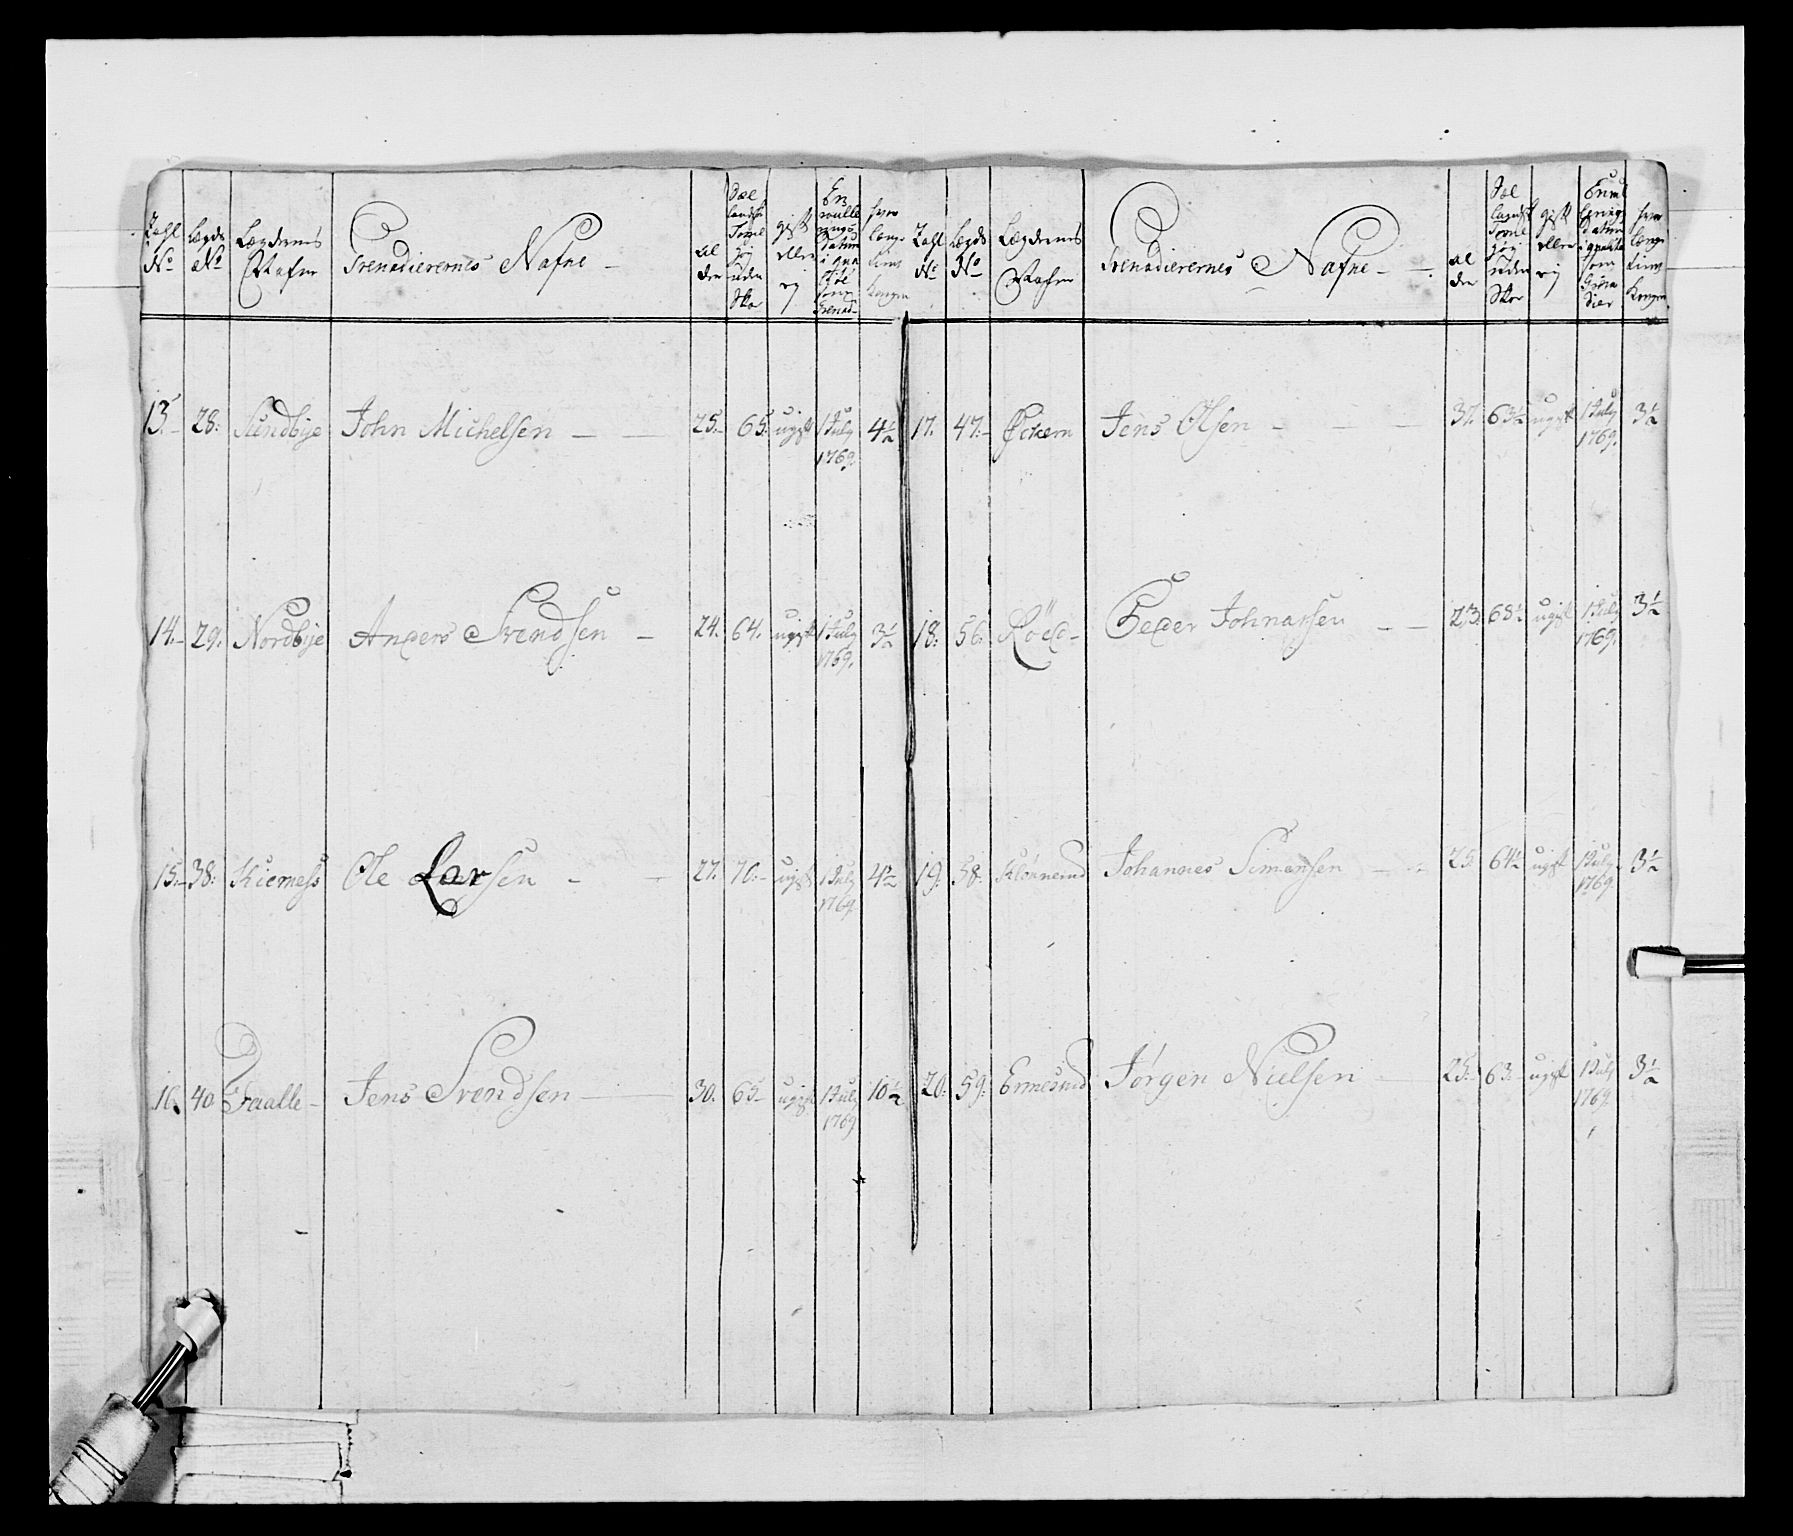 Tahl No Lægds No Lægdernes Nafne Grenadierernes Nafne – Al der Sæl landsk Tomel høj uden Skoe gift eller ej En roulle rings Datum i qua som Grenad– hvor længe tient Kongen
13. 28. Sundbye John Michelsen – – 25. 65. ugift 1 July 1769. 4½
14. 29. Nordbye Anders Svendsen – 24. 64. ugift 1 July 1769. 3½
15. 38. Kierness Ole Larsen – – 27. 70. ugift 1 July 1769. 4½
16. 40 Faalle – Jens Svendsen – 30. 65 ugift 1 July 1769 10½
Tahl No Lægds No Lægdernes Nafne Grenadierernes Nafne – Al der Sæl landsk Tomel høj uden Skoe gift eller ej Datum i qualitæ som Grena dier hvor længe tient Kongen
17. 47. Ockern Jens Olsen – – – 37. 63½ ugift 1 July 1769. 3½
18. 56. Röed – Peder Johnansen – – 23. 68½ ugift 1 July 1769. 3½
19. 58. Johannes Simensen – – 25 64½ ugift 1 July 1769 3½
20. 59. Ermesund Jørgen Nielsen – 25. 63. ugift 1 July 1769. 3½